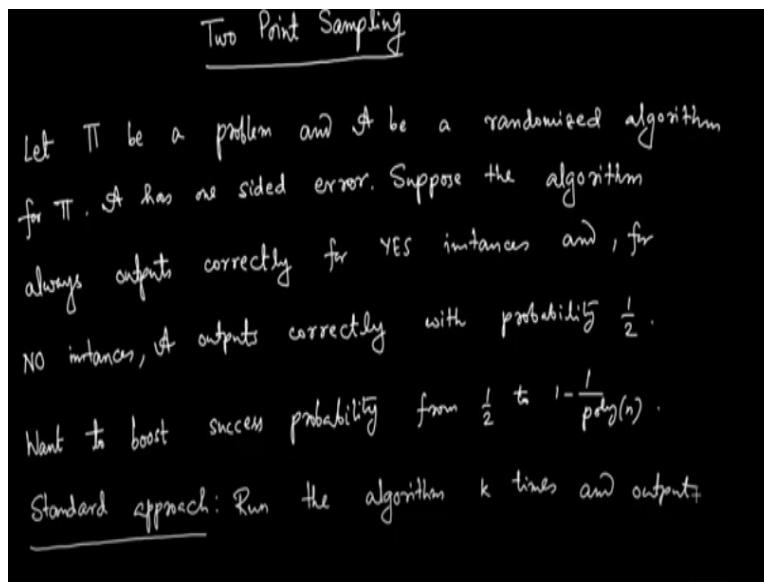 Two Point Sampling
Let Π be a problem and A be a randomized algorithm
for Π. A has one sided error. Suppose the algorithm
always outputs correctly for YES instances and, for
NO instances, A outputs correctly with probability 1/2.
Want to boost success probability from 1/2 to 1-1/poly(n).
Standard approach: Run the algorithm k times and output